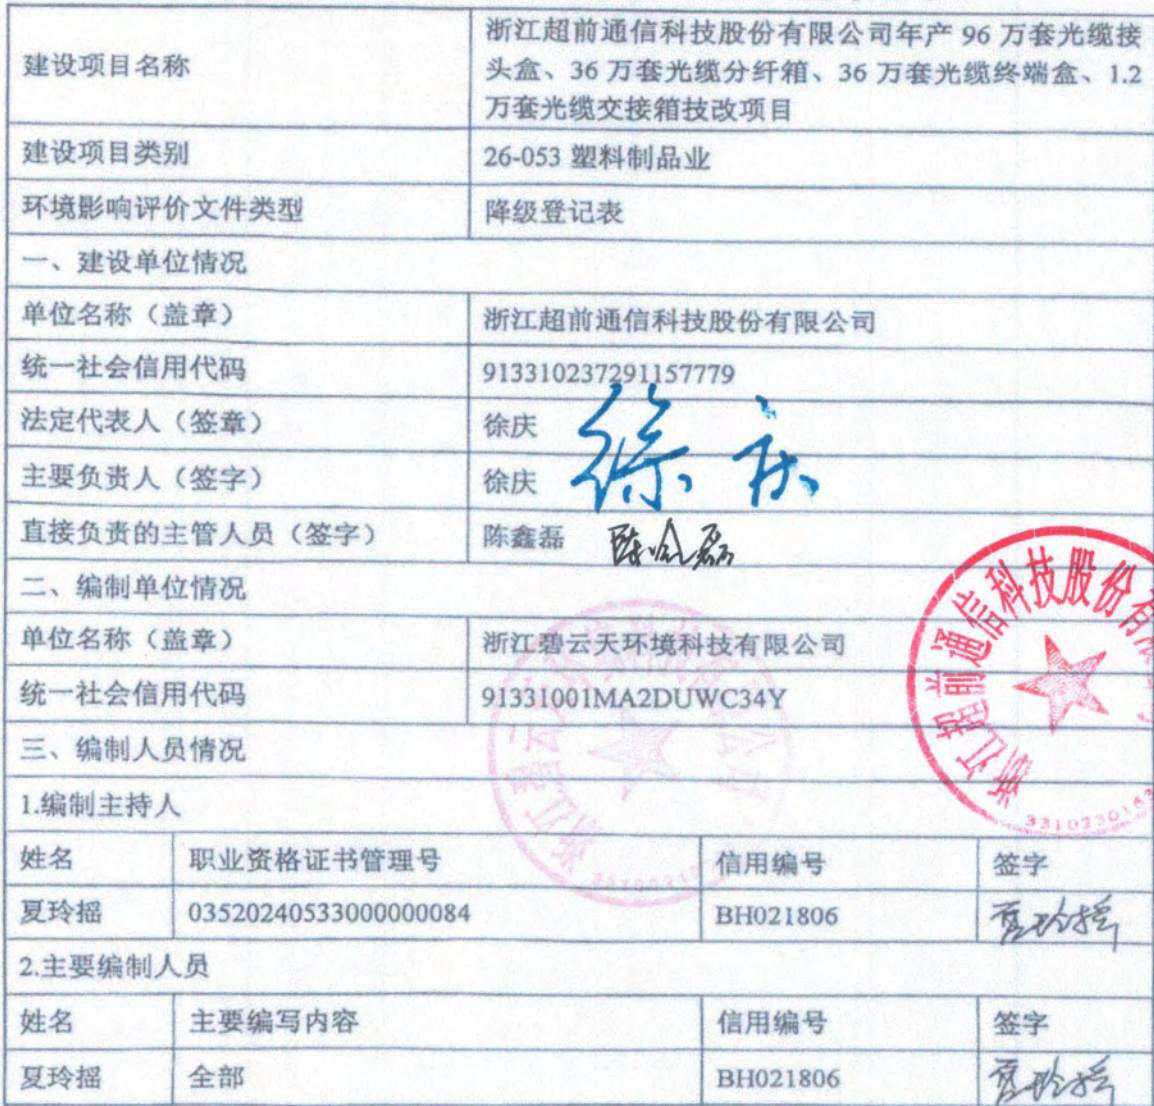 建设项目名称
浙江超前通信科技股份有限公司年产 96 万套光缆接
头盒、36 万套光缆分纤箱、36 万套光缆终端盒、1.2
万套光缆交接箱技改项目
建设项目类别 26-053 塑料制品业
环境影响评价文件类型 降级登记表
一、建设单位情况
单位名称（盖章） 浙江超前通信科技股份有限公司
统一社会信用代码 913310237291157779
法定代表人（签章） 徐庆 徐庆
主要负责人（签字） 徐庆
直接负责的主管人员（签字） 陈鑫磊 陈鑫磊
二、编制单位情况
单位名称（盖章） 浙江碧云天环境科技有限公司
统一社会信用代码 91331001MA2DUWC34Y
三、编制人员情况
1.编制主持人
姓名 职业资格证书管理号 信用编号 签字
夏玲摇 03520240533000000084 BH021806 夏玲摇
2.主要编制人员
姓名 主要编写内容 信用编号 签字
夏玲摇 全部 BH021806 夏玲摇
浙江超前通信科技股份有